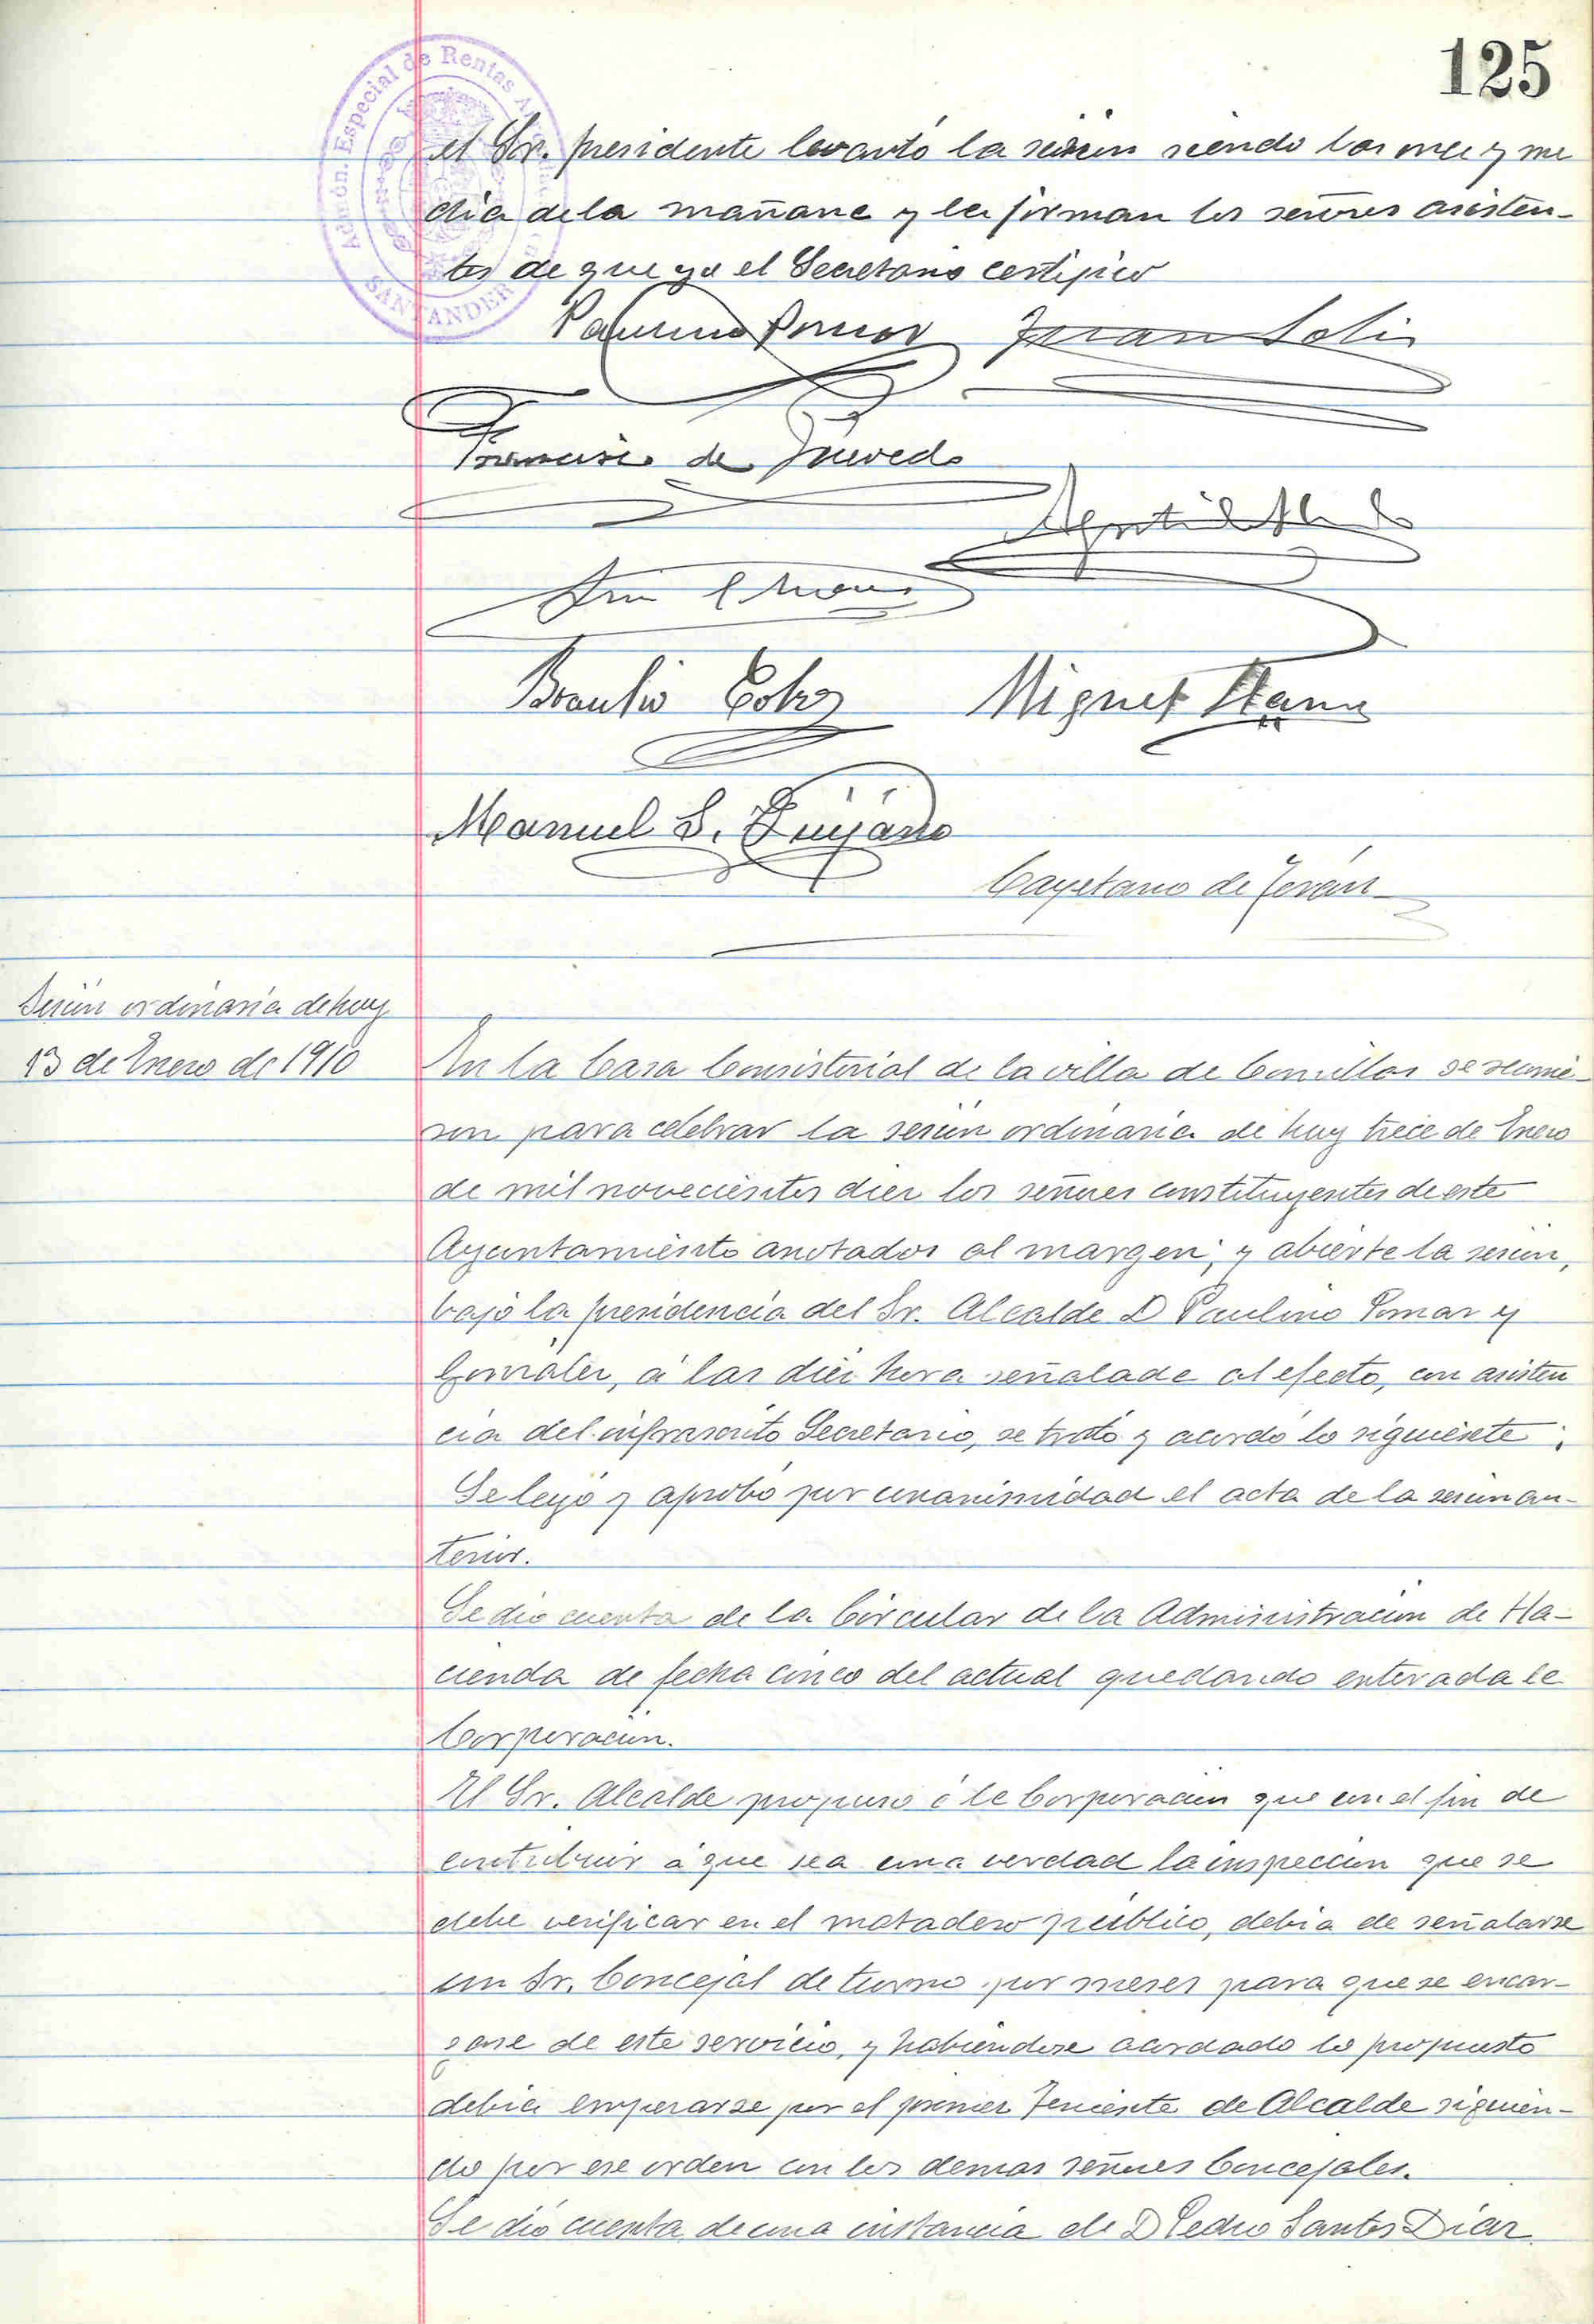 125
Admón. Especial de Rentas
SANTANDER
el Sr. presidente levantó la sesion siendo las once y me
dia de la mañana y la firman los señores asisten-
tes de que yo el Secretario certifico
Paulino Pomar Juan Solis
Francisco de Quevedo
Braulio Cobos Miguel Llano
Manuel S. Quijano
Cayetano de Terán
Sesion ordinaria de hoy
13 de Enero de 1910
En la Casa Consistorial de la villa de Comillas se reunie-
ron para celebrar la sesion ordinaria de hoy trece de Enero
de mil novecientos diez los señores constituyentes de este
Ayuntamiento anotados al margen; y abierta la sesion,
bajo la presidencia del Sr. Alcalde D Paulino Pomar y
Gonzalez, á las diez hora señalada al efecto, con asisten
cia del infrascrito Secretario, se trató y acordó lo siguiente:
Se leyó y aprobó por unanimidad el acta de la sesion an-
terior.
Se dio cuenta de la Circular de la Administracion de Ha-
cienda de fecha cinco del actual quedando enterada la
Corporacion.
El Sr. Alcalde propuso á la Corporacion que con el fin de
contribuir á que sea una verdad la inspeccion que se
debe verificar en el matadero público, debia de señalarse
un Sr. Concejal de turno por meses para que se encar-
gase de este servicio, y habiendose acordado lo propuesto
debia empezarse por el primer Teniente de Alcalde siguien-
do por ese orden con los demas señores Concejales.
Se dió cuenta de una instancia de D Pedro Santos Diaz